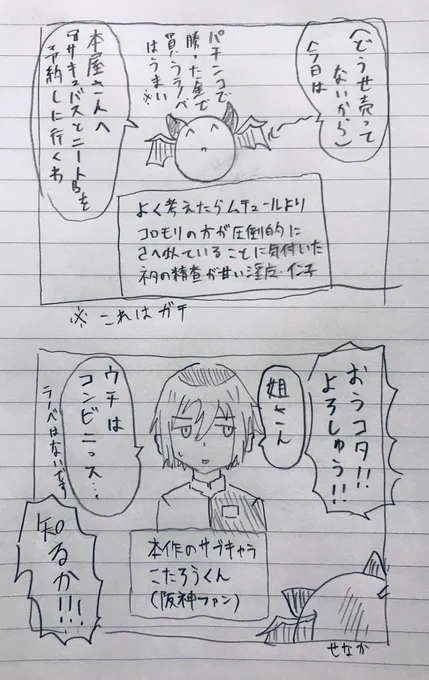 (どうせ売って
ないから)
今日は
パチンコで
勝った金で
買うラノベ
はうまい※
本屋さんへ
『サキュバスとニート』を
予約しに行くわ
よく考えたらムチュールより
コロモリの方が圧倒的に
さへ
ていることに気付いた
ネタの精査が甘い淫魔・仁子
※これはガチ
おうコタ!!
よろしゅう!!
姐さん
ウチは
コンビニッス…
ラノベはないです
知るか!!!
本作のサブキャラ
こたろうくん
(阪神ファン)
せなか